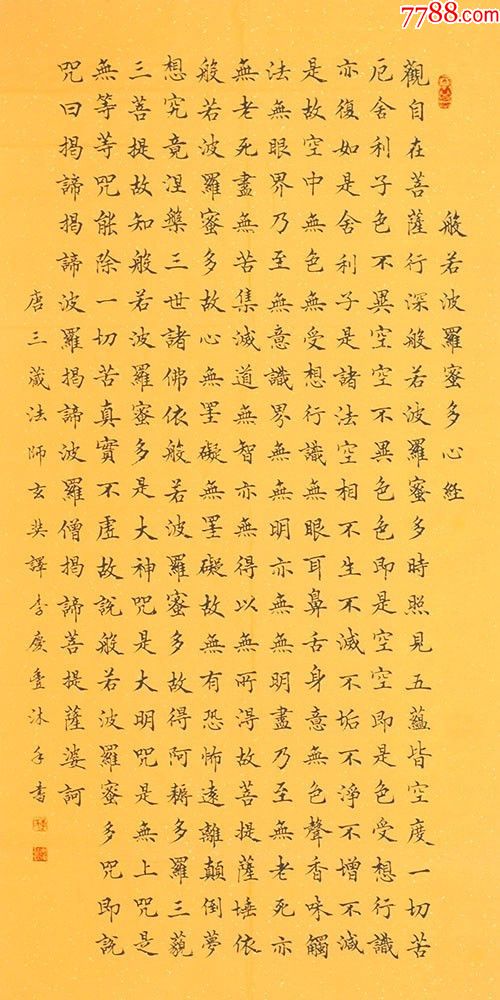 7788.com
般若波羅蜜多心経
觀自在菩薩行深般若波羅蜜多時照見五蘊皆空度一切苦
厄舍利子色不異空空不異色色即是空空即是色受想行識
亦復如是舍利子是諸法空相不生不滅不垢不淨不增不減
是故空中無色無受想行識無眼耳鼻舌身意無色聲香味觸
法無眼界乃至無意識界無無明亦無無明盡乃至無老死亦
無老死盡無苦集滅道無智亦無得以無所得故菩提薩埵依
般若波羅蜜多故心無罣礙無罣礙故無有恐怖遠離顛倒夢
想究竟涅槃三世諸佛依般若波羅蜜多故得阿耨多羅三藐
三菩提故知般若波羅蜜多是大神咒是大明咒是無上咒是
無等等咒能除一切苦真實不虛故說般若波羅蜜多咒即說
咒曰揭諦揭諦波羅揭諦波羅僧揭諦菩提薩婆訶
唐三藏法師玄奘譯李慶豐沐手書